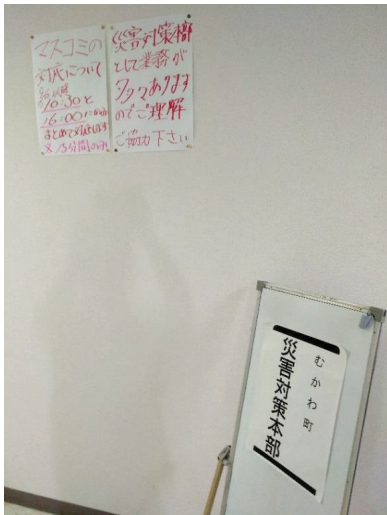 マスコミの
対応について
10:30と
16:00に
まとめて対応します
※15分間のみ
災害対策本部
として業務が
多々あります
のでご理解
ご協力下さい
むかわ町
災害対策本部